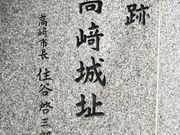 跡
高崎城址
高崎市長 住谷啓三郎